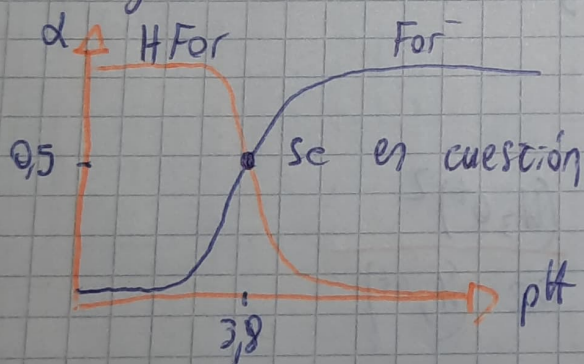 α HFor For⁻
0,5 Sc en cuestión
pH
3,8